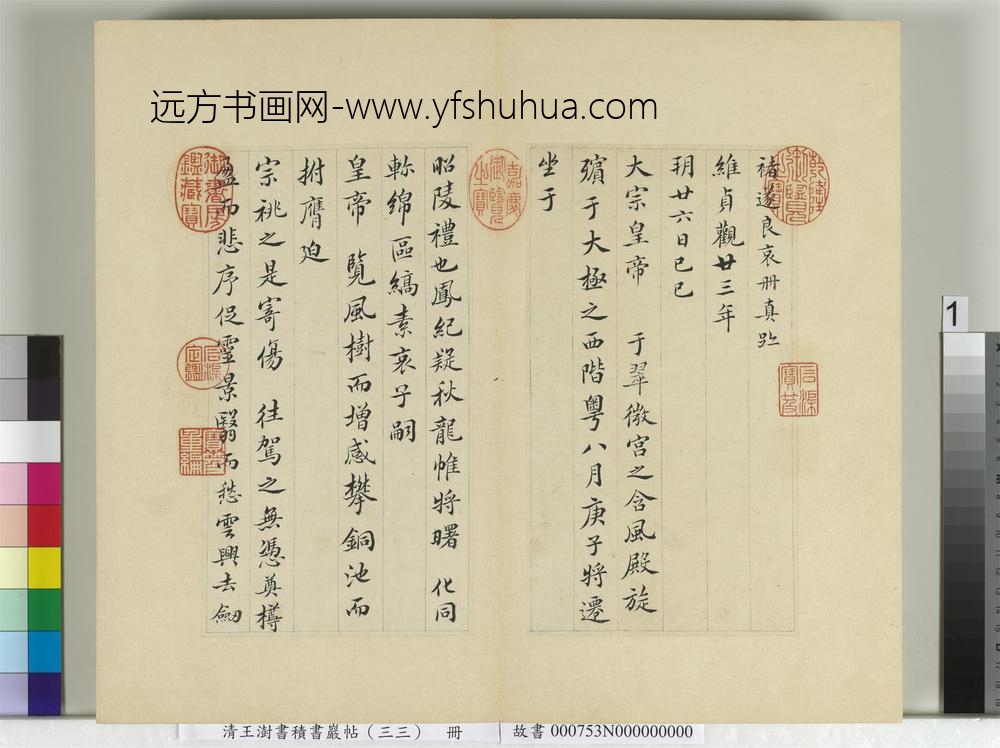 远方书画网-www.yfshuhua.com
褚遂良哀册真跡
維貞觀廿三年
玥廿六日己巳
大宗皇帝 于翠微宫之含風殿旋
殯于大極之西階粤八月庚子将遷
坐于
昭陵禮也鳳紀疑秋龍帷将曙 化同
軫綿區縞素哀子嗣
皇帝 覽風樹而增感攀銅池而
拊膺迫
宗祧之是寄傷 往駕之無憑奠樽
盈而悲序促靈景翳而愁雲興去劔
乾隆御覽之寶
嘉慶御覽之寶
御書房鑑藏寶
石渠寶笈
石渠定鑑
寶笈重編
1
清王澍書積書巖帖（三三） 冊
故書 000753N000000000